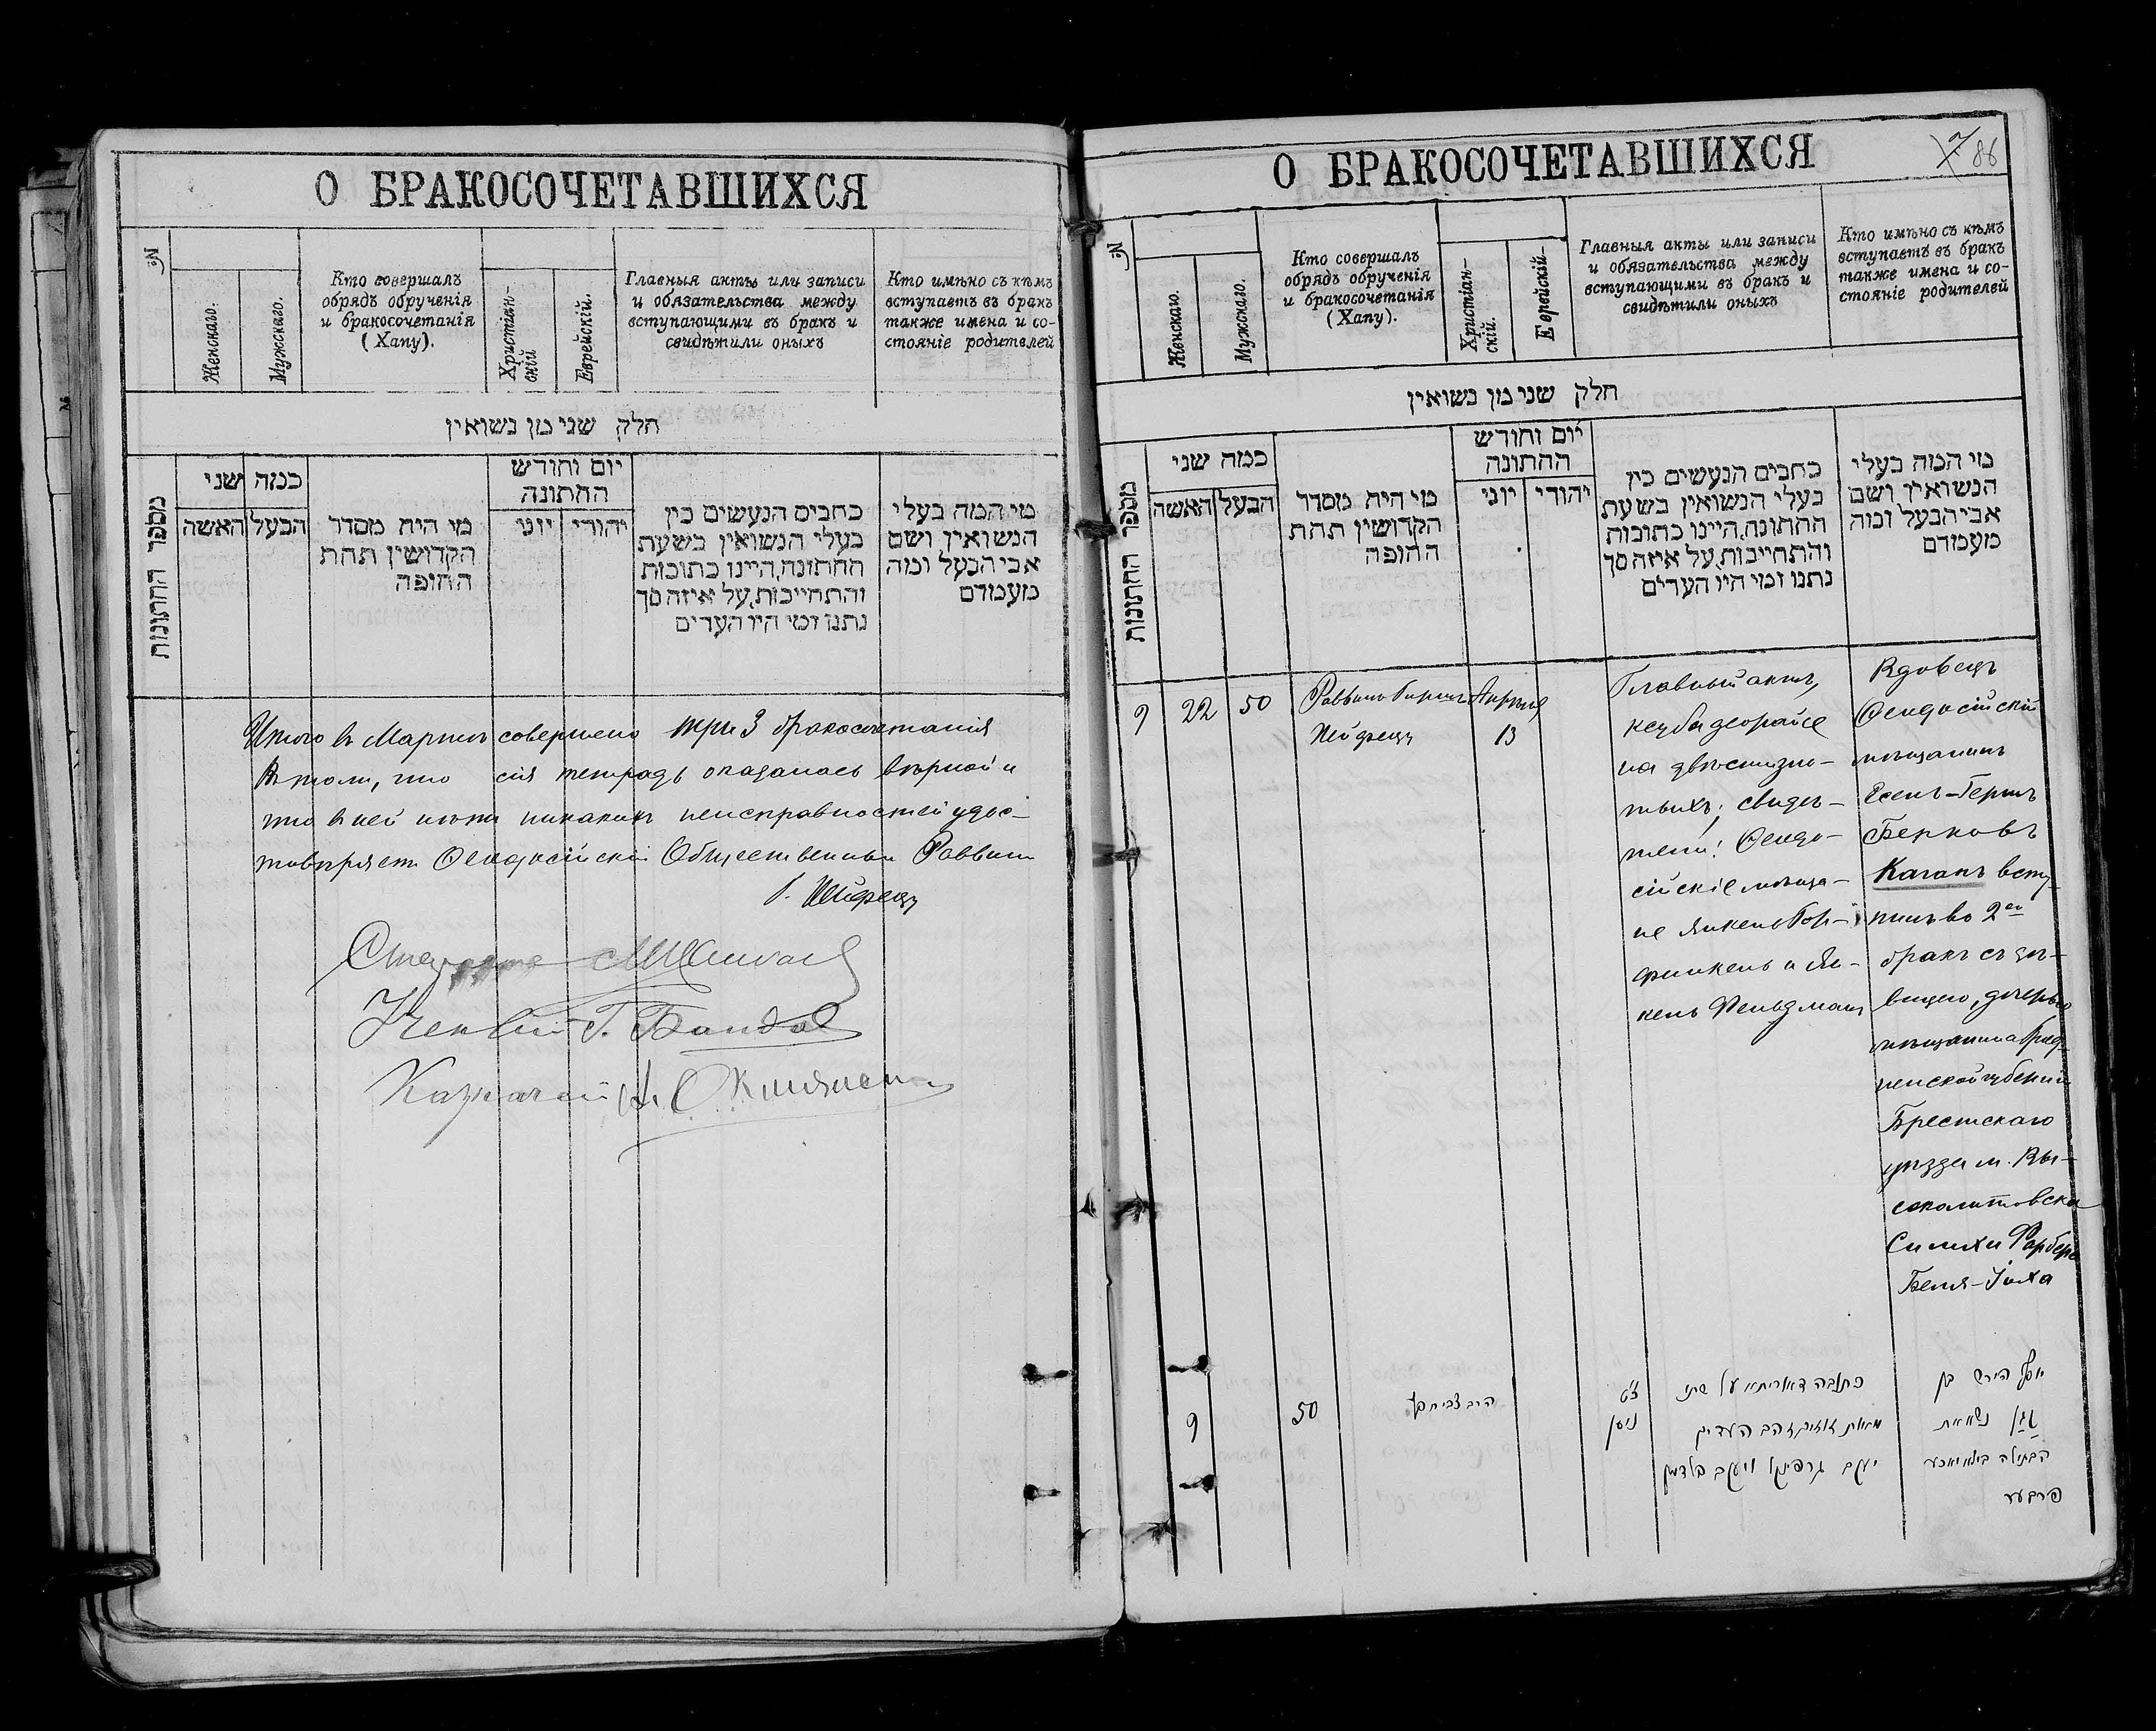 О БРАКОСОЧЕТАВШИХСЯ
№
Женскаго.
Мужскаго.
Кто совершалъ
обрядъ обрученія
и бракосочетанія
(Хапу).
Христіан-
скій
Еврейскій.
Главныя акты или записи
и обязательства между
вступающими въ бракъ и
свидѣтили оныхъ
Кто имѣно съ кѣмъ
вступаетъ въ бракъ
также имена и со-
стояніе родителей
חלק שני מן נשואין
מספר החתונות
כמה שני
האשה
הבעל
מי היה מסדר
הקדושין תחת
החופה
יום וחודש
החתונה
יוני
יהודי
כתבים הנעשים בין
בעלי הנשואין בשעת
החתונה, היינו כתובות
והתחייבות, על איזה סך
נתנו ומי היו העדים
מי המה בעלי
הנשואין ושם
אבי הבעל ומה
מעמדם
Итого въ Мартѣ совершено три 3 бракосочетанія
Въ томъ, что сія тетрадь оказалась вѣрной и
что въ ней нѣтъ никакихъ неисправностей удос-
товѣряетъ Ѳеодосійскій Общественный Раввинъ
Г. Шейфецъ
Староста
Ученый Г.
Казначей
О БРАКОСОЧЕТАВШИХСЯ
86
№
Женскаго.
Мужскаго.
Кто совершалъ
обрядъ обрученія
и бракосочетанія
(Хапу).
Христіан-
скій.
Еврейскій-
Главныя акты или записи
и обязательства между
вступающими въ бракъ и
свидѣтили оныхъ
Кто имѣно съ кѣмъ
вступаетъ въ бракъ
также имена и со-
стояніе родителей
חלק שני מן נשואין
מספר החתונות
כמה שני
האשה
הבעל
מי היה מסדר
הקדושין תחת
החופה
יום וחודש
החתונה
יוני
יהודי
כתבים הנעשים בין
בעלי הנשואין בשעת
החתונה, היינו כתובות
והתחייבות, על איזה סך
נתנו ומי היו העדים
מי המה בעלי
הנשואין ושם
אבי הבעל ומה
מעמדם
9
22
50
Раввинъ Гиршъ
Шейфецъ
Апрѣля
13
Главный актъ,
кецуба деорайсе
на двѣсти зло-
тыхъ; свидѣ-
тели: Ѳеодо-
сійскіе мѣща-
не Янкель Гор-
финкель и Ян-
кель Фельдманъ
Вдовецъ
Ѳеодосійскій
мѣщанинъ
Іосель-Гершъ
Берковъ
Каганъ всту-
пилъ во 2ой
бракъ съ дѣ-
вицею, дочерью
мѣщанина Грод-
ненской губерніи
Брестскаго
уѣзда м. Вы-
соколитовска
Симхи Фарбера
Бейля-Іоха
9
50
הרב צבי
ניסן
כתובה דאוריתא על שתי
מאות זוזים זהב העדים
יעקב גרפינקל ויעקב פלדמן
יוסף הירש בן
כגן נשא את
הבתולה ביילא יאכע
פארבער